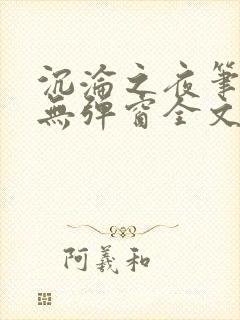 沉淪之夜筆
無彈窗全文
阿羲和